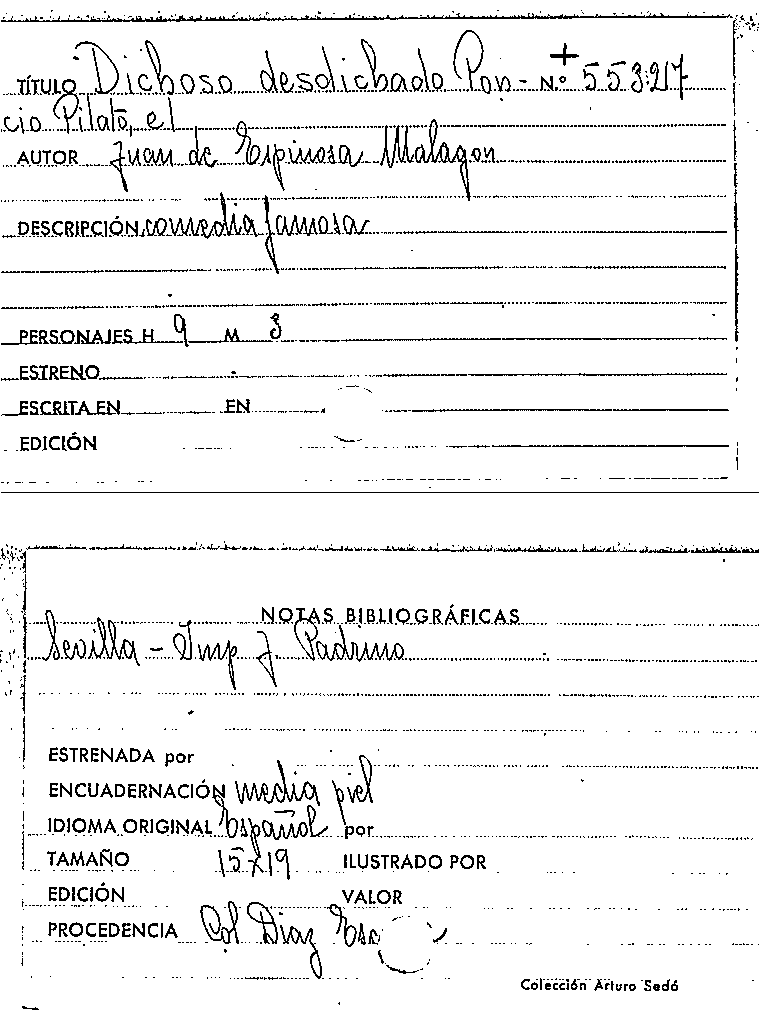 TÍTULO Dichoso desdichado Pon- N.º + 553217
cio Pilato, el
AUTOR Juan de Espinosa Malagon
DESCRIPCIÓN comedia famosa
PERSONAJES H 9 M 3
ESTRENO
ESCRITA EN EN
EDICIÓN
NOTAS BIBLIOGRÁFICAS
Sevilla - Imp J. Padrino
ESTRENADA por
ENCUADERNACIÓN media piel
IDIOMA ORIGINAL Español por
TAMAÑO 15x19 ILUSTRADO POR
EDICIÓN VALOR
PROCEDENCIA Col Diaz Esc
Colección Arturo Sedó